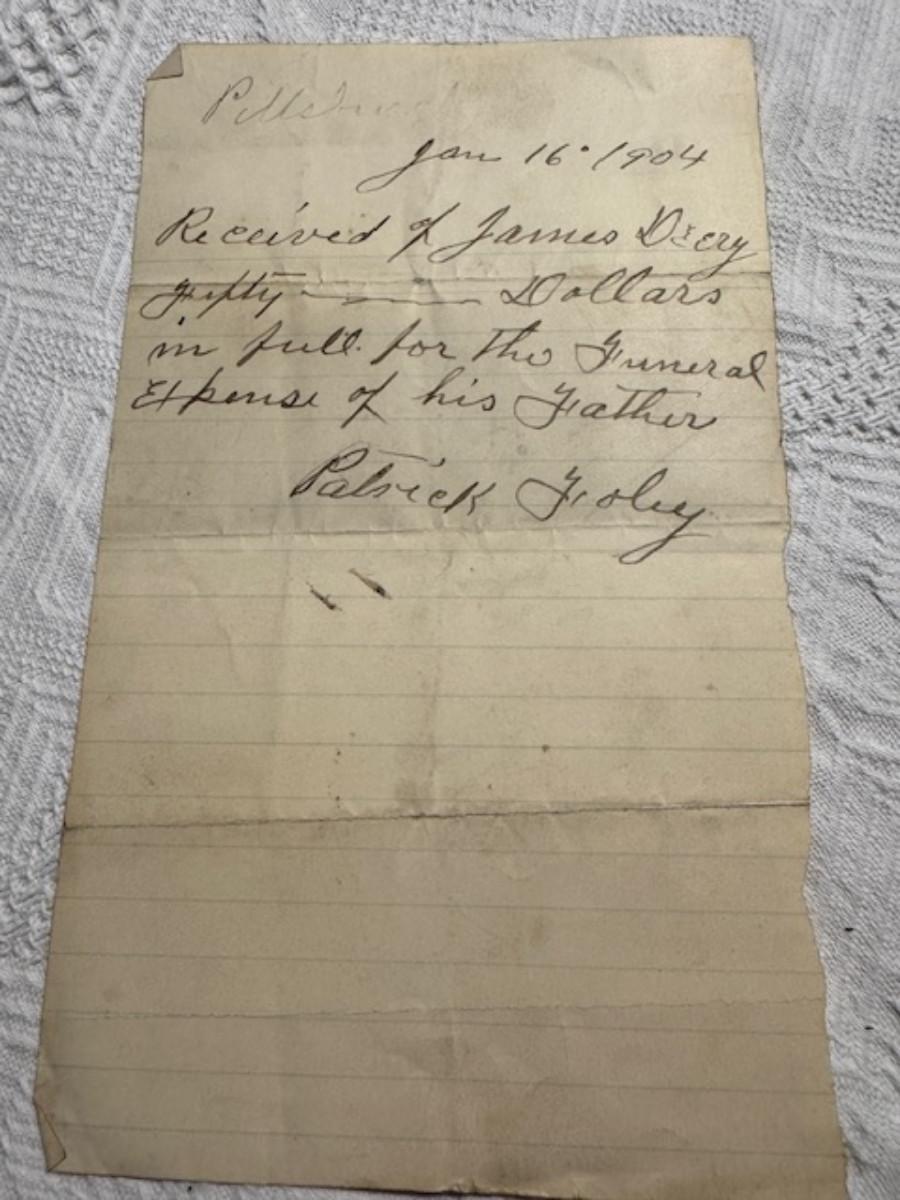 Jan 16 1904
Received of James Deery
Fifty Dollars
in full for the Funeral
Expense of his Father
Patrick Foley